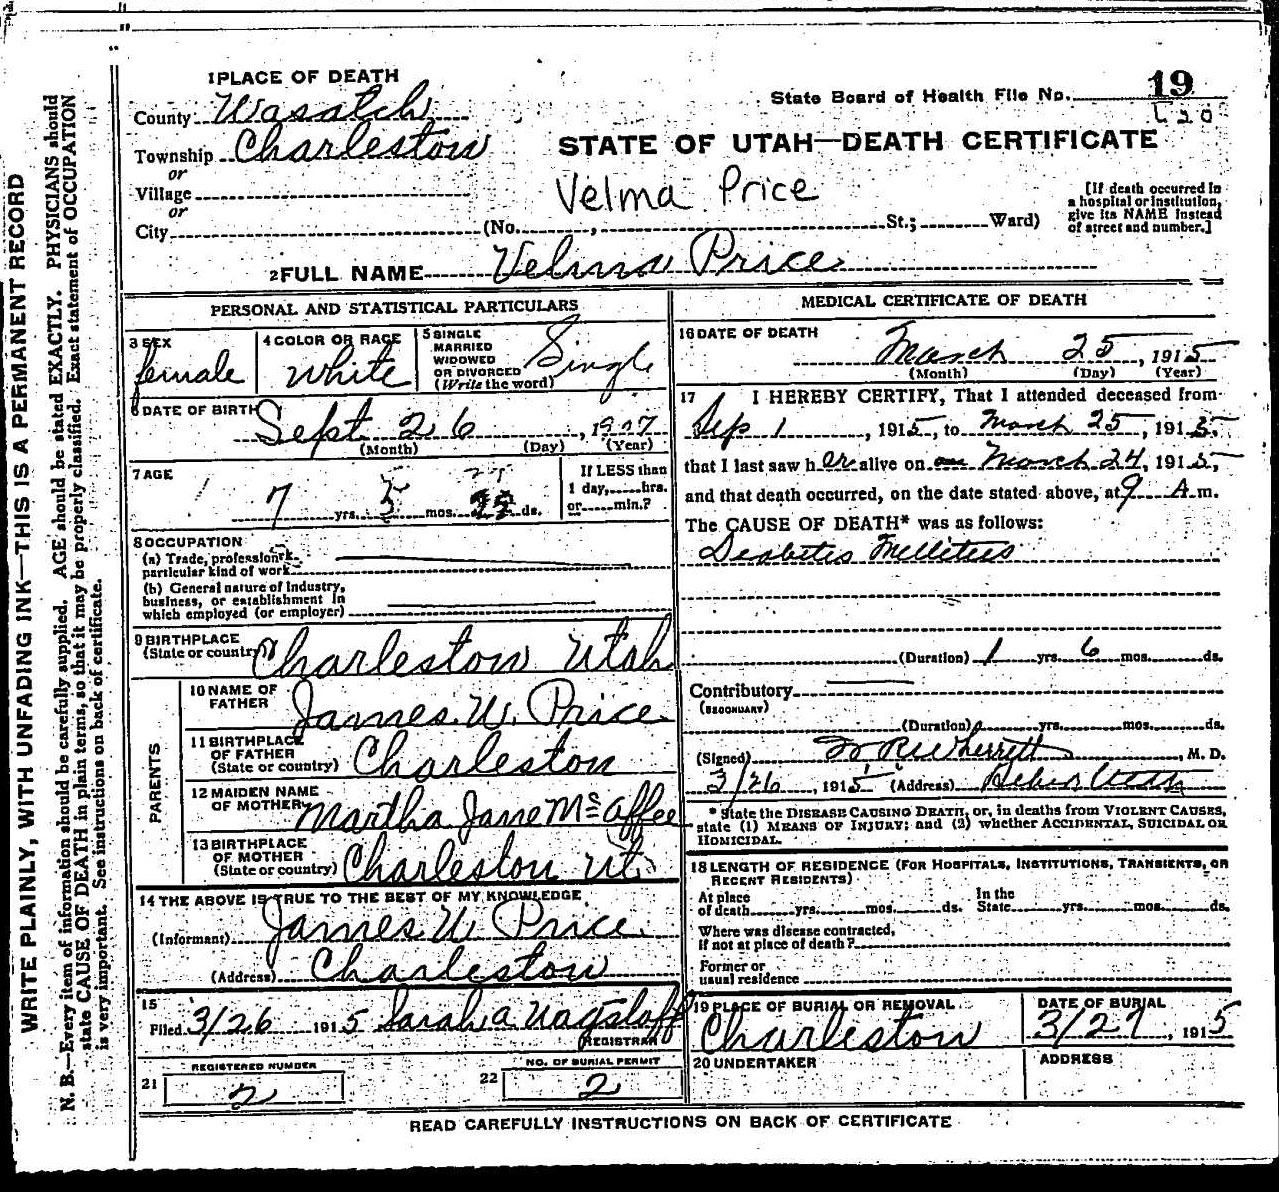 1 PLACE OF DEATH
County Wasatch
Township Charleston
or
Village
or
City (No. , St.; Ward)
State Board of Health File No. 19
STATE OF UTAH—DEATH CERTIFICATE
Velma Price
[If death occurred in
a hospital or institution,
give its NAME instead
of street and number.]
2 FULL NAME Velma Price
PERSONAL AND STATISTICAL PARTICULARS
3 SEX
female
4 COLOR OR RACE
White
5 SINGLE
MARRIED
WIDOWED
OR DIVORCED
(Write the word)
Single
6 DATE OF BIRTH
Sept. 26, 1907
(Month) (Day) (Year)
7 AGE
7 yrs. 5 mos. ds.
If LESS than
1 day, hrs.
or min.?
8 OCCUPATION
(a) Trade, profession or
particular kind of work
(b) General nature of industry,
business, or establishment in
which employed (or employer)
9 BIRTHPLACE
(State or country) Charleston Utah
PARENTS
10 NAME OF
FATHER James W. Price
11 BIRTHPLACE
OF FATHER
(State or country) Charleston
12 MAIDEN NAME
OF MOTHER Martha Jane McAffee
13 BIRTHPLACE
OF MOTHER
(State or country) Charleston Ut.
14 THE ABOVE IS TRUE TO THE BEST OF MY KNOWLEDGE
(Informant) James W Price
(Address) Charleston
15
Filed 3/26 1915 Sarah A Wagstaff
REGISTRAR
21 REGISTERED NUMBER
2
22 NO. OF BURIAL PERMIT
2
MEDICAL CERTIFICATE OF DEATH
16 DATE OF DEATH
March 25, 1915
(Month) (Day) (Year)
17 I HEREBY CERTIFY, That I attended deceased from
Sep 1, 1915, to March 25, 1915
that I last saw her alive on March 24, 1915,
and that death occurred, on the date stated above, at 9 A m.
The CAUSE OF DEATH* was as follows:
Diabetes Mellitus
(Duration) 1 yrs. 6 mos. ds.
Contributory
(SECONDARY)
(Duration) yrs. mos. ds.
(Signed) Wherritt, M. D.
3/26, 1915 (Address) Heber Utah
* State the DISEASE CAUSING DEATH, or, in deaths from VIOLENT CAUSES,
state (1) MEANS OF INJURY; and (2) whether ACCIDENTAL, SUICIDAL OR
HOMICIDAL.
18 LENGTH OF RESIDENCE (FOR HOSPITALS, INSTITUTIONS, TRANSIENTS, OR
RECENT RESIDENTS)
At place
of death yrs. mos. ds.
In the
State yrs. mos. ds.
Where was disease contracted,
if not at place of death?
Former or
usual residence
19 PLACE OF BURIAL OR REMOVAL
Charleston
DATE OF BURIAL
3/27, 1915
20 UNDERTAKER
ADDRESS
READ CAREFULLY INSTRUCTIONS ON BACK OF CERTIFICATE
WRITE PLAINLY, WITH UNFADING INK—THIS IS A PERMANENT RECORD
N. B.—Every item of information should be carefully supplied. AGE should be stated EXACTLY. PHYSICIANS should
state CAUSE OF DEATH in plain terms, so that it may be properly classified. Exact statement of OCCUPATION
is very important. See instructions on back of certificate.